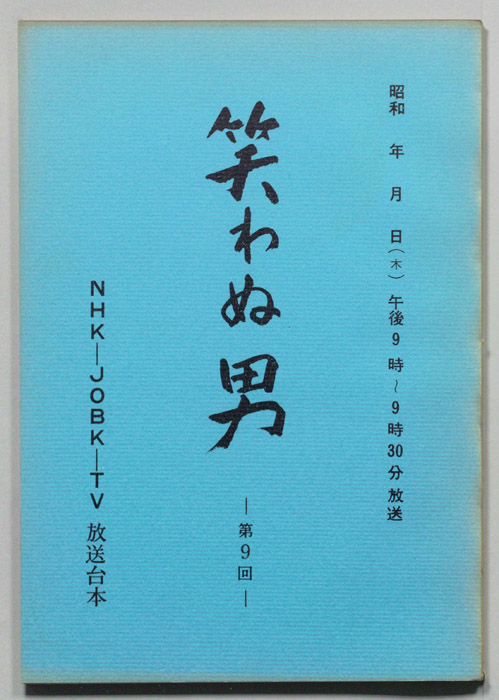 昭和　年　月　日（木）午後9時～9時30分放送
笑わぬ男
―第9回―
NHK―JOBK―TV放送台本